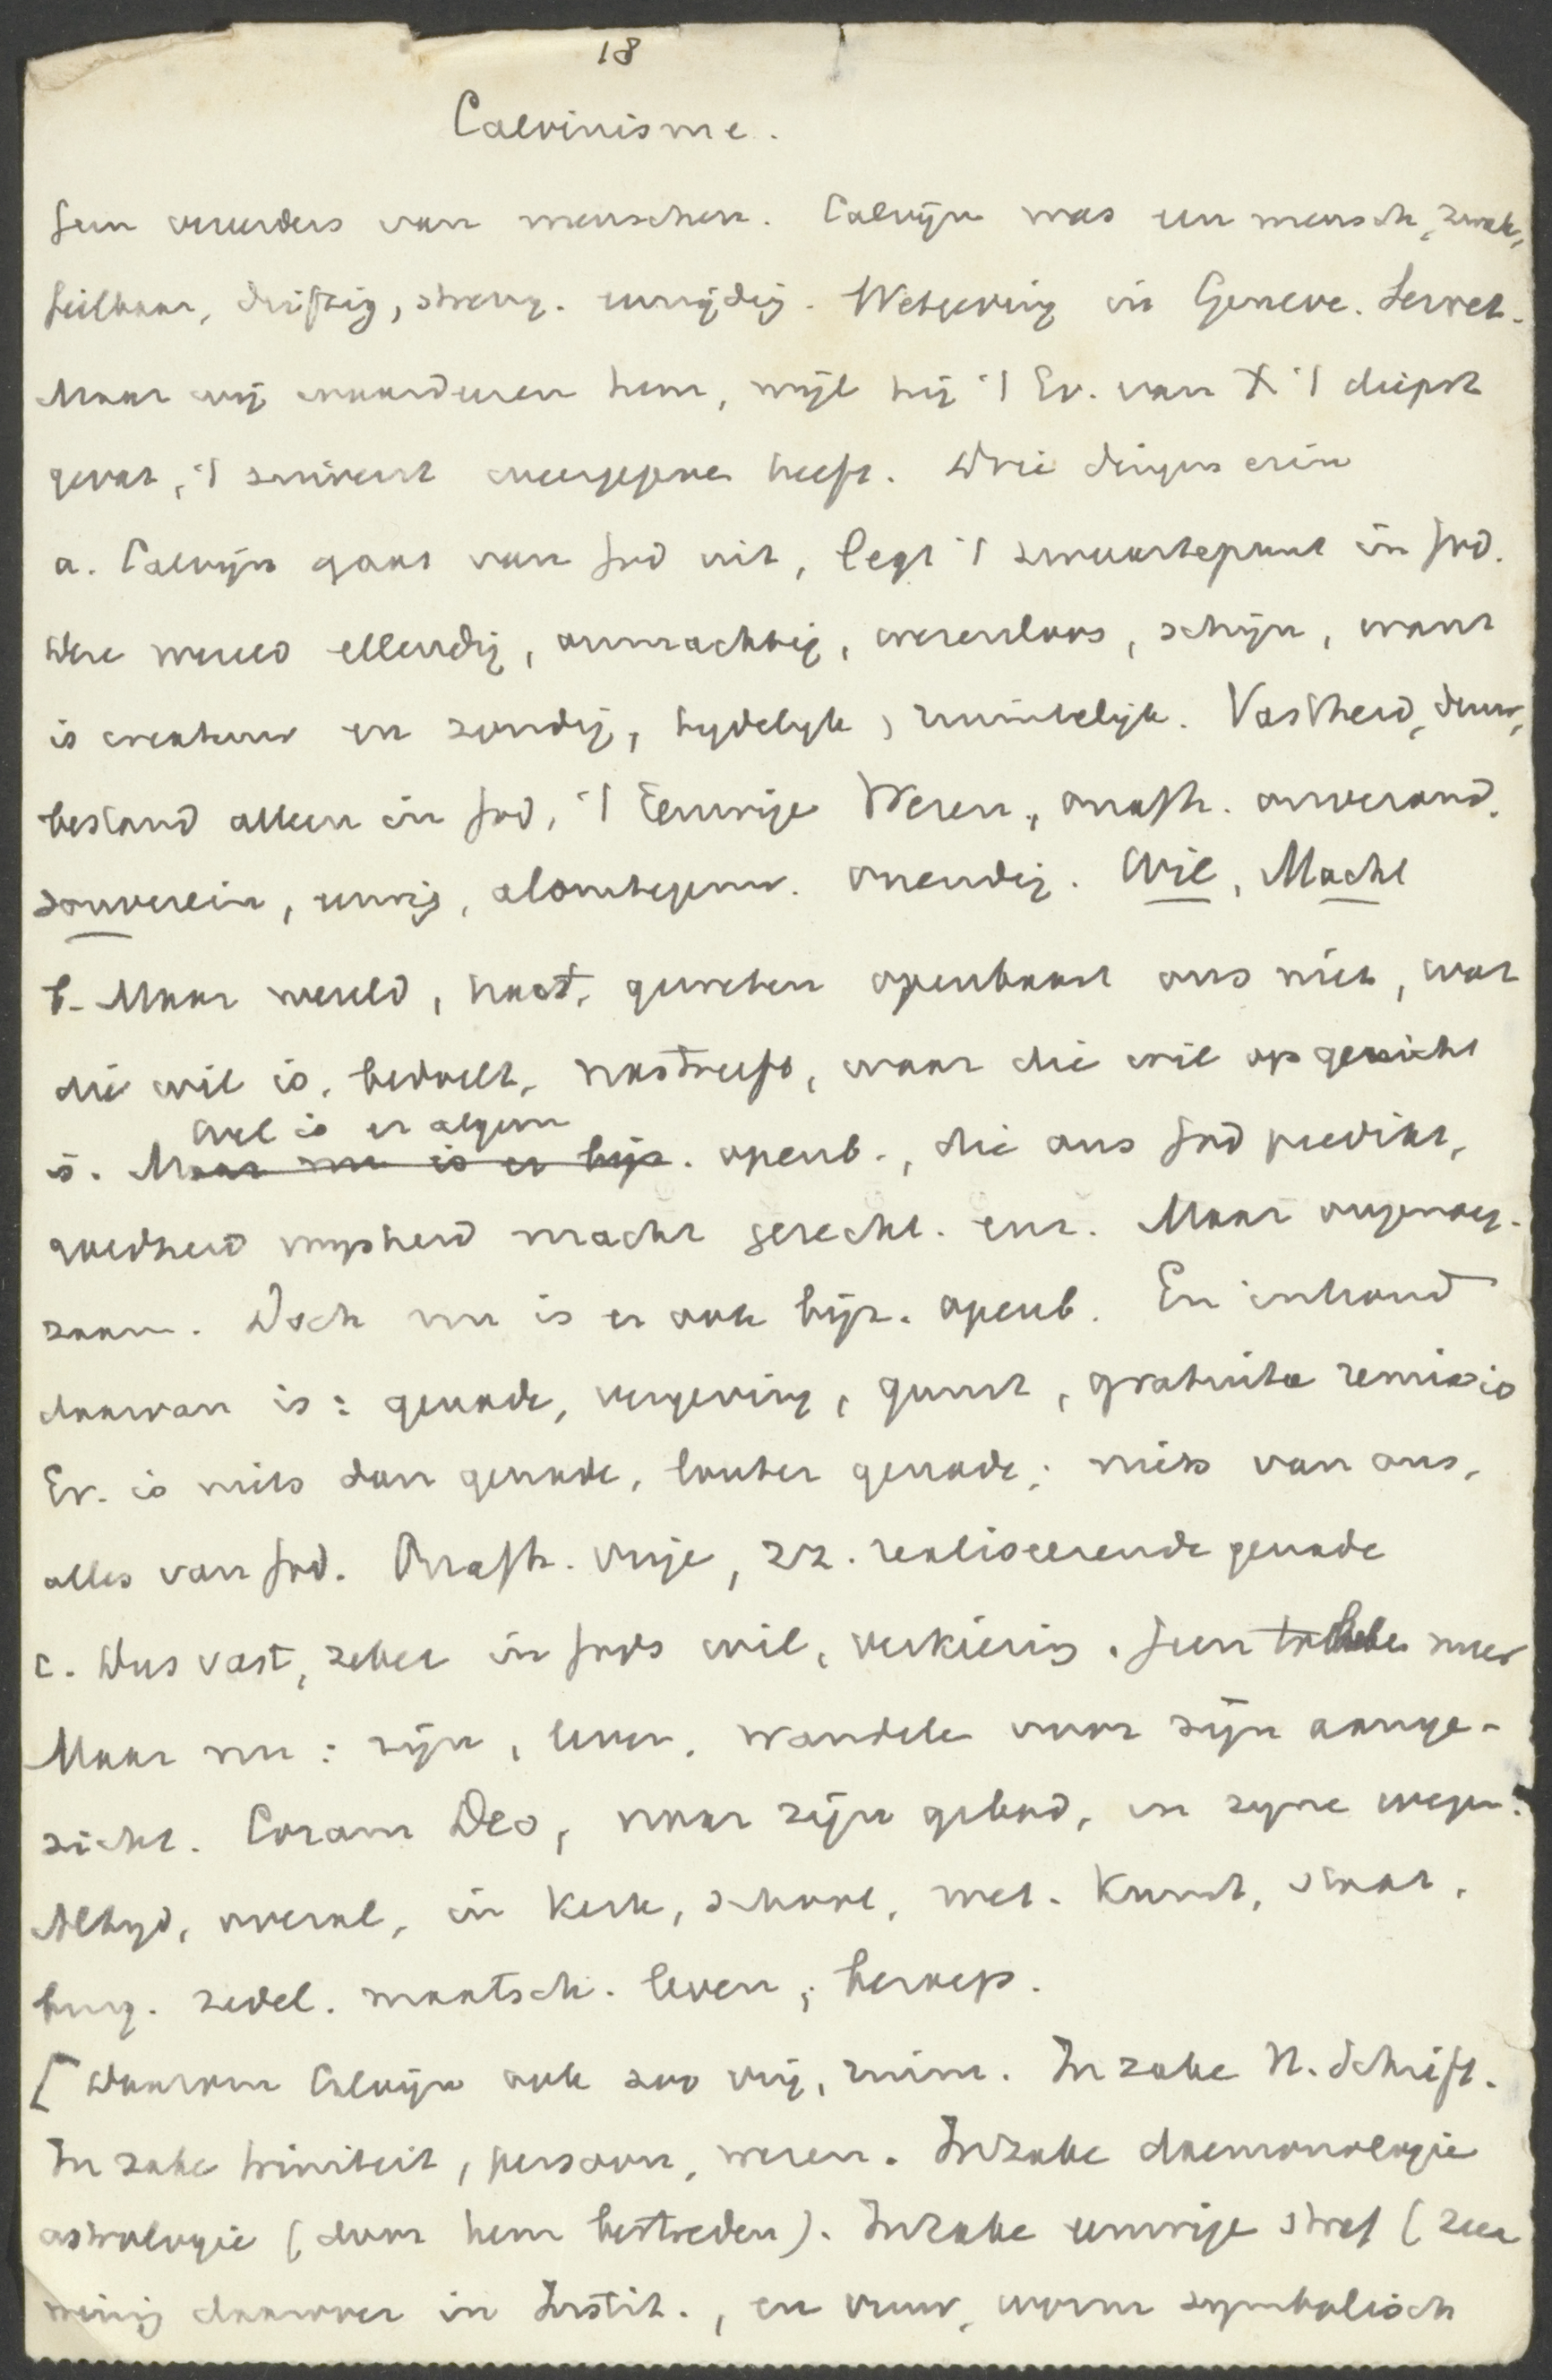 18
Calvinisme.
Geen vereerders van menschen. Calvijn was een mensch, zwak,
feilbaar, driftig, streng. eenzijdig. Wetgeving in Geneve. Servet.
Maar wij waardeeren hem, wijl hij 't Ev. van X 't diepst
gevat, 't zuiverst weergegeven heeft. Drie dingen erin
a. Calvijn gaat van God uit, legt 't zwaartepunt in God.
Deze wereld ellendig, onmachtig, wezenloos, schijn, want
is creatuur en zondig, tydelyk, ruimtelijk. Vastheid, duur,
bestand alleen in God, 't Eeuwige Wezen, onafh. onverand.
souverein, eeuwig, alomtegenw. oneindig. Wil, Macht
b. Maar wereld, hart, geweten openbaart ons niet, wat
die wil is, bedoelt, nastreeft, waar die wil op gericht
is. Wel is er algem
Maar nu is er bijz. openb., die ons God predikt,
goedheid wysheid macht gerecht. enz. Maar ongenoeg-
zaam. Doch nu is er ook bijz. openb. En inhoud
daarvan is: genade, vergeving, gunst, gratuita remissio
Ev. is niets dan genade, louter genade; niets van ons,
alles van God. Onafh. vrije, zz. realiseerende genade
c. Dus vast, zeker in Gods wil, verkiezing. Geen meer
Maar nu: zijn, leven, wandelen voor zijn aange-
zicht. Coram Deo, naar zijn gebod, in zyne wegen.
Altyd, overal, in Kerk, school, wet. Kunst, staat,
burg. zedel. maatsch. leven, beroep.
[Daarom Calvijn ook zoo vrij, ruim. In zake H. Schrift.
In zake triniteit, persoon, wezen. Inzake daemonologie
astrologie (door hem bestreden). Inzake eeuwige straf (zeer
weinig daarover in Instit., en vuur, worm symbolisch